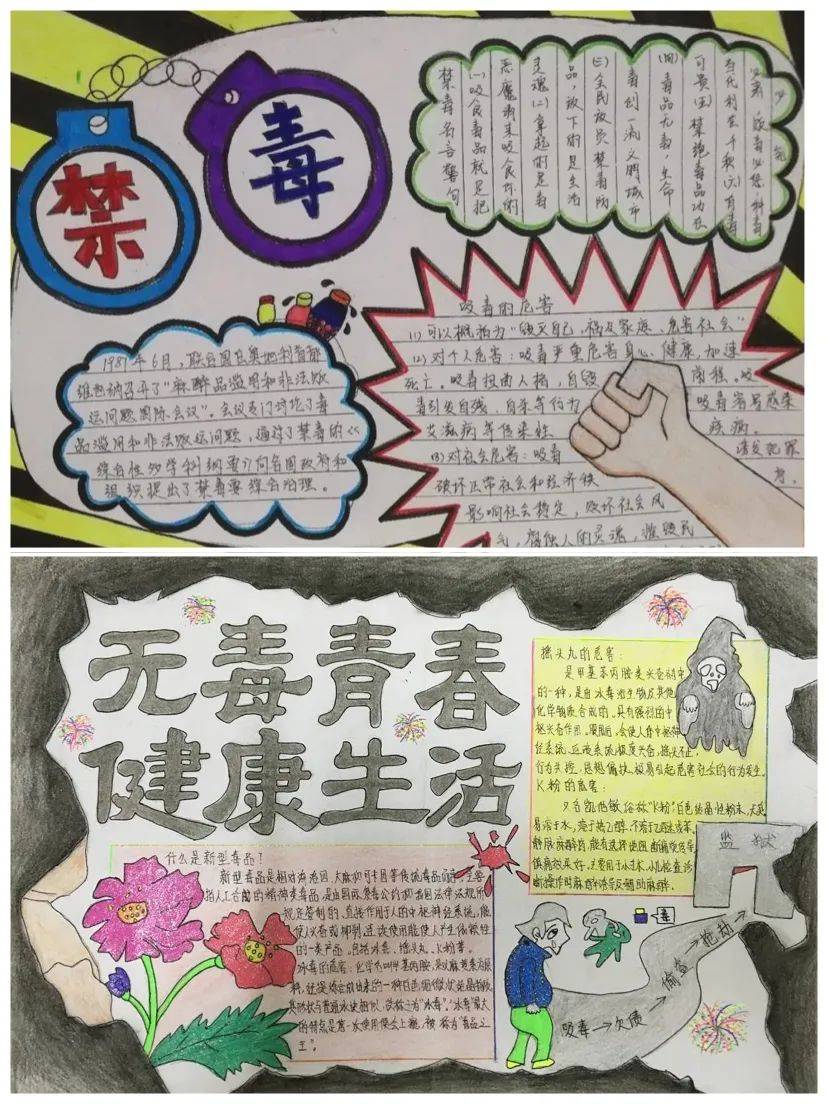 禁
毒
禁毒名言警句
(一)吸食毒品就是把
恶魔请来吸食你的
灵魂(二)拿起的是毒
品,放下的是生活
(三)全民放员禁毒防
毒创一流文明城市
(四)毒品无毒,生命
可贵(五)禁绝毒品功在
当代利在千秋(六)有毒
必肃
1987年6月,联合国在奥地利首都
维也纳召开了“麻醉品滥用和非法贩
运问题国际会议”。会议专门讨论了毒
品滥用和非法贩运问题,通过了禁毒的《
综合性多学科纲要》向各国政府和
组织提出了禁毒要综合治理。
吸毒的危害
(1)可以概括为“毁灭自己,祸及家庭、危害社会”
(2)对个人危害:吸毒严重危害身心健康,加速
死亡。吸毒扭曲人格,自毁 吸
毒引发自残、自杀等行为 吸毒容易感染
艾滋病等传染性 疾病。
(3)对社会危害:吸毒 诱发犯罪
破坏正常社会和经济秩
影响社会稳定,败坏社会风
气,腐蚀人的灵魂,摧毁民
无毒青春
健康生活
摇头丸的危害:
是甲基苯丙胺类兴奋剂中
的一种,是由冰毒衍生物及其他
化学物质合成的。具有强烈的中
枢兴奋作用。服用后,会使人中枢神
经系统、血液系统极度兴奋,摇头不止,
行为失控,思想偏执,极易引起危害社会的行为发生。
K粉的危害:
又名氯胺酮,俗称“K粉”白色结晶性粉末,无臭,
易溶于水,溶于热乙醇,不溶于乙醚或苯,
监狱
什么是新型毒品?
新型毒品是相对鸦片、海洛因、大麻和可卡因等传统毒品而言,主要
指人工合成的精神类毒品,是由国际禁毒公约和我国法律法规所
规定管制的,直接作用于人的中枢神经系统,能
使人兴奋或抑制,连续使用能使人产生依赖性
的一类产品。包括冰毒、摇头丸、K粉等。
冰毒的危害:化学名叫甲基丙胺,是以麻黄素为原
其形状与普通冰块相似,故称之为“冰毒”。“冰毒”最大
的特点是第一次使用便会上瘾,被称为“毒品之
王”。
毒
吸毒→欠债
偷盗→抢劫→